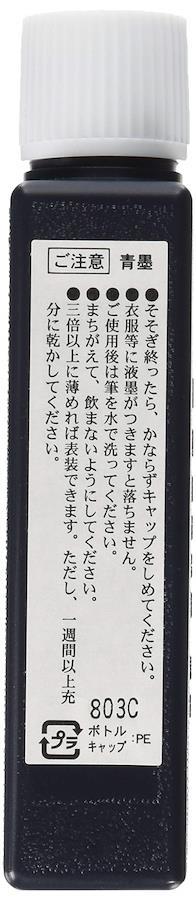 ご注意 青墨
●そそぎ終ったら、かならずキャップをしめてください。
●衣服等に液墨がつきますと落ちません。
●ご使用後は筆を水で洗ってください。
●まちがえて、飲まないようにしてください。
●三倍以上に薄めれば表装できます。ただし、一週間以上充
分に乾かしてください。
803C
プラ
ボトル
キャップ :PE